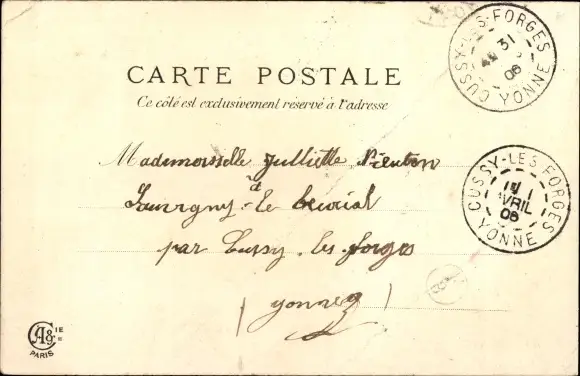 CARTE POSTALE
Ce côté est exclusivement réservé à l'adresse
Mademoiselle Julliette
Sauvigny-le beuréal
par Cussy-les-forges
(yonne)
CUSSY-LES-FORGES
31
06
YONNE
CUSSY-LES FORGES
AVRIL
06
YONNE
CIE
PARIS